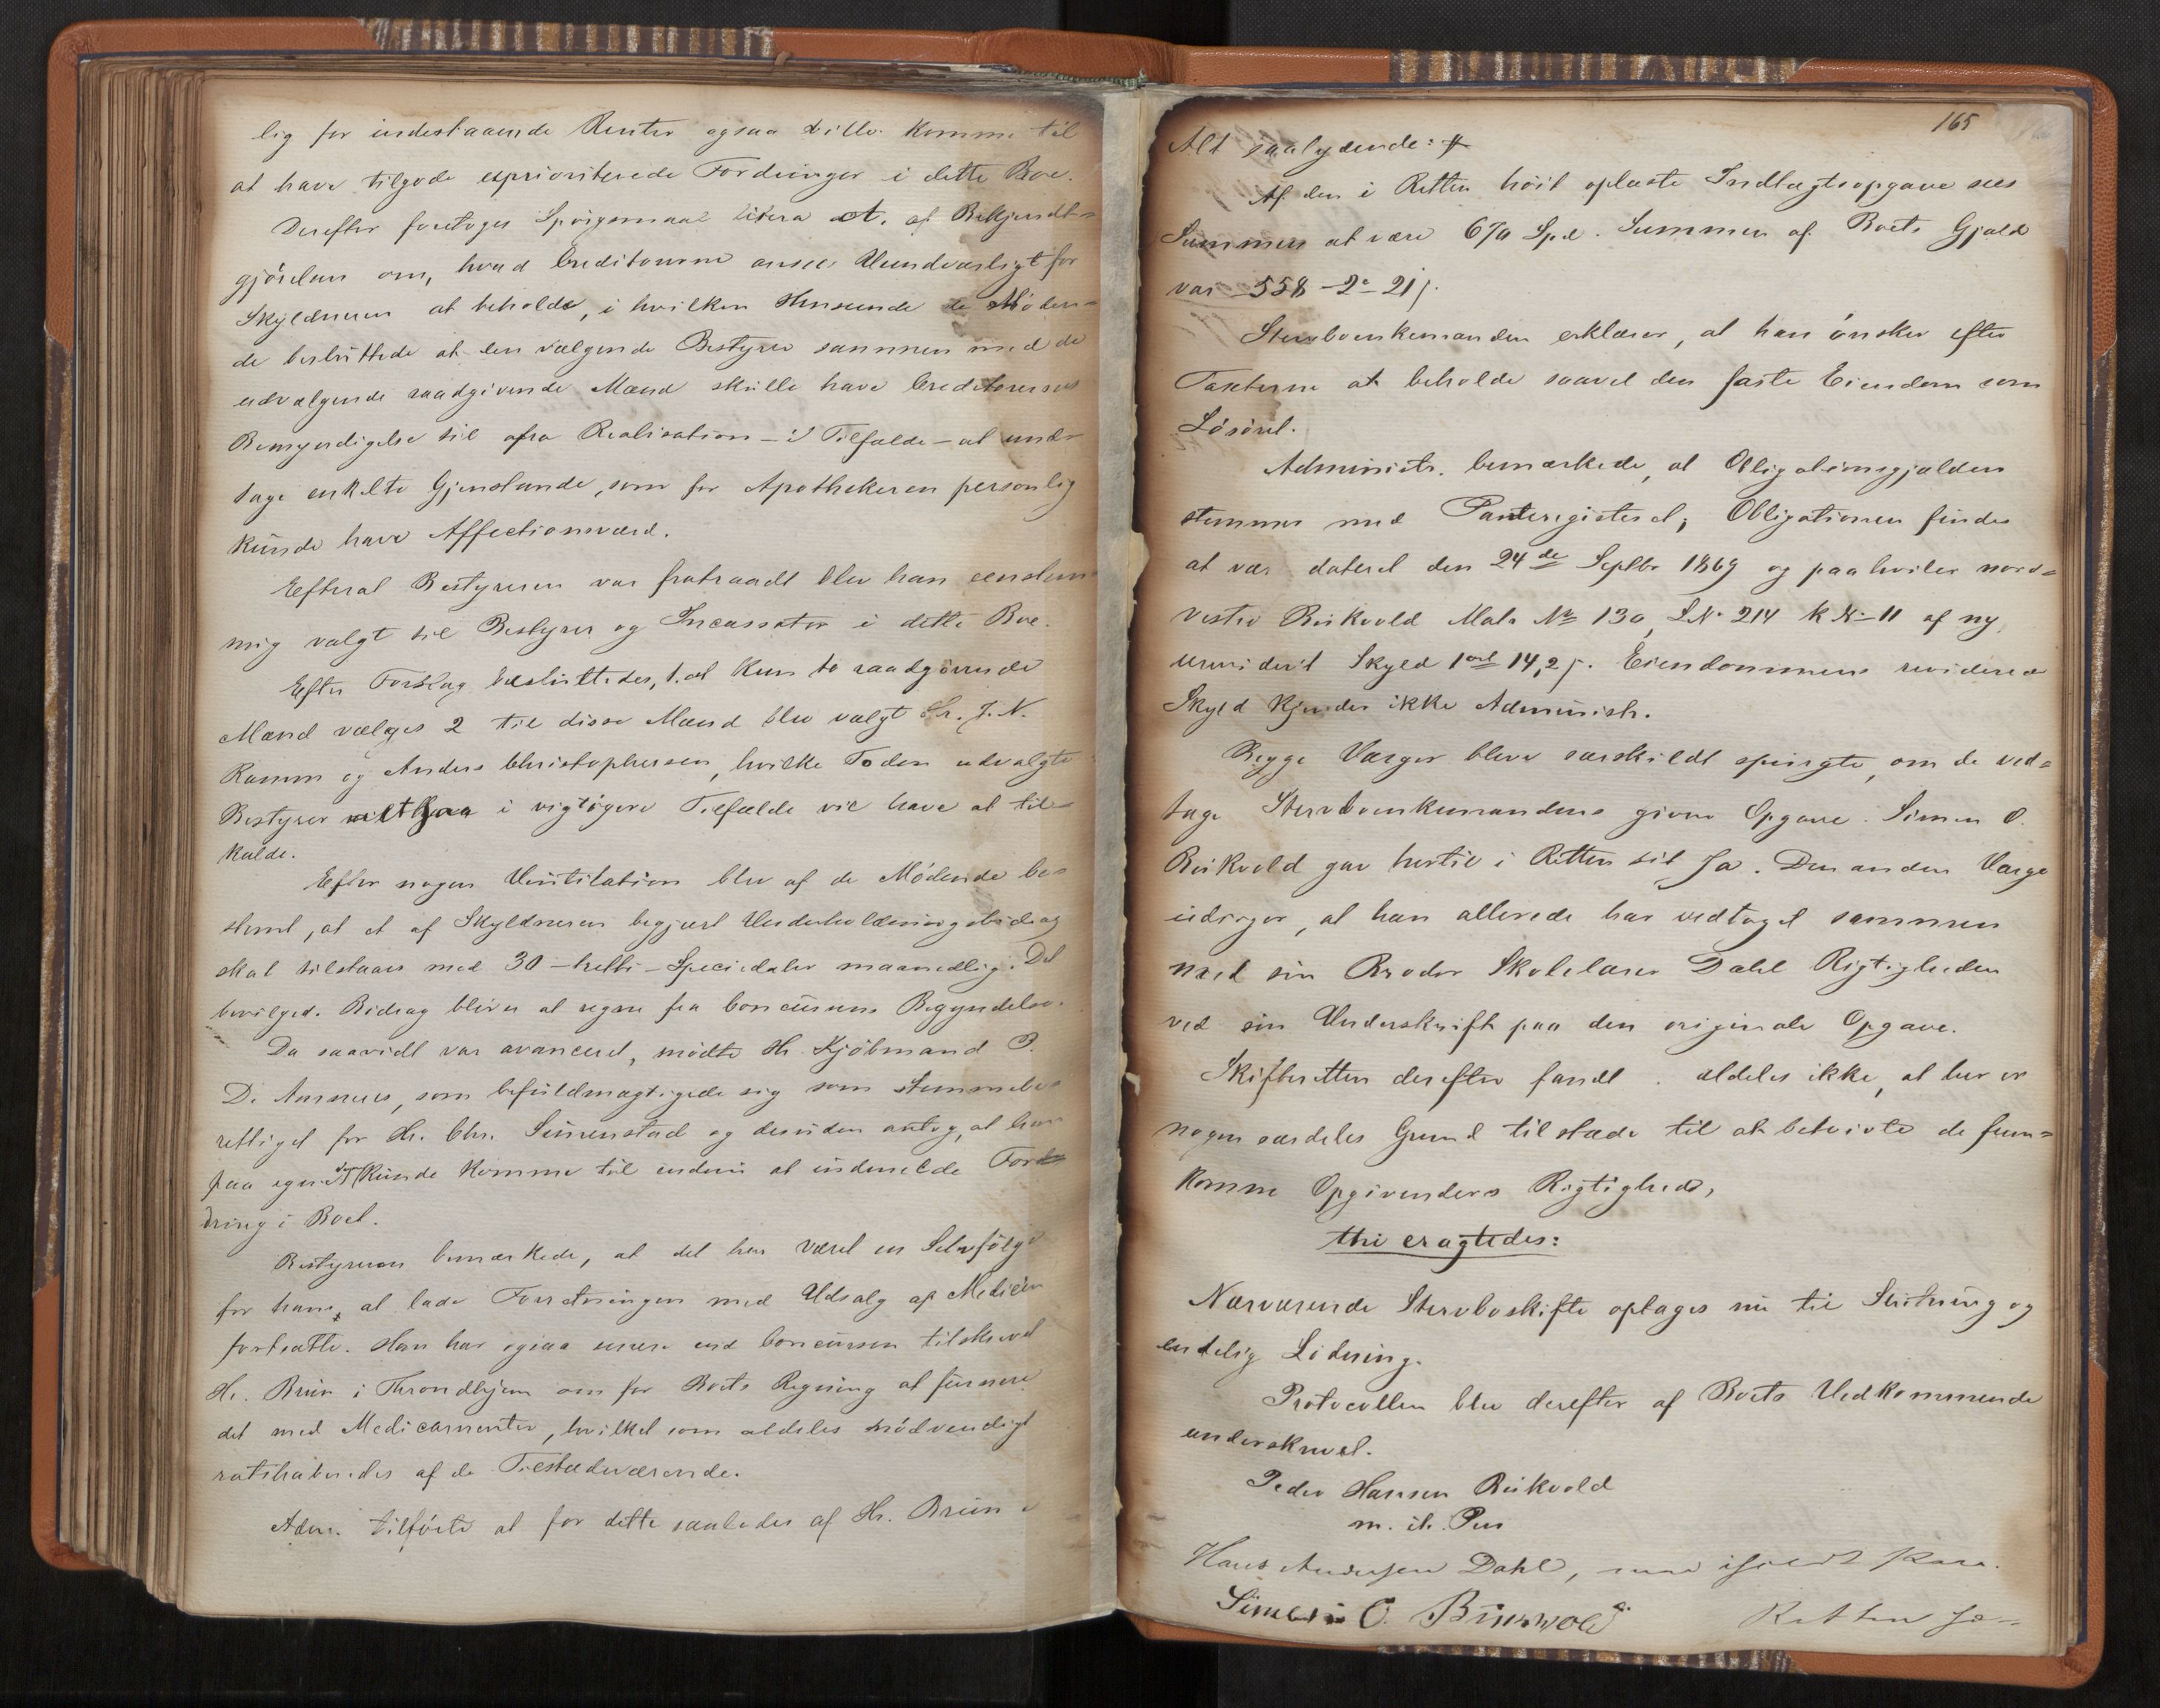 lig for indestaaende Renter ogsaa ville komme til
at have tilgode uprioriterede Fordringer i dette Boe.
Derefter foretoges Spörgsmaal litera A. af Bekjendt-
gjörelsen om, hvad Creditorerne ansee Uundværligt for
Skyldneren at beholde, i hvilken Henseende de Möden-
de besluttede at den vælgende Bestyrer sammen med de
udvælgende raadgivende Mænd skulle have Creditorernes
Bemyndigelse til afra Realisation – i Tilfælde – at und-
tage enkelte Gjenstande, som for Apothekeren personlig
kunde have Affectionsværd.
Efterat Bestyreren var fratraadt blev han eenstem-
mig valgt til Bestyrer og Incassator i dette Boe.
Efter Forslag besluttedes, 1. at kun to raadgivende
Mænd vælges 2 til disse Mænd blev valgt Hr. J. N.
Ramm og Anders Christophersen, hvilke To den udvalgte
Bestyrer i vigtigere Tilfælde vil have at til-
kalde.
Efter nogen Ventilation blev af de Mödende be-
stemt, at et af Skyldneren begjært Underholdningsbidrag
skal tilstaaes med 30 – tretti – Speciedaler maanedlig. Det
bevilged. Bidrag bliver at regne fra Concursens Begyndelse.
Da saavidt var avanceret, mödte Hr. Kjöbmand P.
D. Aasnes, som befuldmægtigede sig som stemmebe-
rettiget for Hr. Chr. Simenstad og desuden antog, at han
paa egne kunde komme til endnu at indmelde Ford-
dring i Boet.
Bestyreren bemærkede, at det har været en Selvfölge
for ham, at lade Forretningen med Udsalg af Medicin
fortsætte. Han har ogsaa senere end Concursen tilskrevet
Hr. Bruun i Throndhjem om for Boets Regning at furnere
det med Medicamenter, hvilket som aldeles nödvendigt
ratihaberedes af de Tilstedeværende.
Adm. tilförte at for dette saaledes af Hr. Bruun
165
Alt saalydende:
Af den i Retten höit oplæste Indtægtsopgave sees
Summen at være 670 Spd. Summen af Boets Gjæld
var 558 – 2 – 21 /.
Stervboenkemanden erklærer, at han önsker efter
Taxterne at beholde saavel den faste Eiendom som
Lösöret.
Administr. bemærkede, at Obligationsgjælden
stemmer med Panteregisteret; Obligationen findes
at vær dateret den 24de Septbr 1869 og paahviler nord-
vestre Biskvold Matr № 130, L№ 214 k № 11 af ny,
urevider't Skyld 1 ort 14,2 /. Eiendommens reviderede
Skyld kjender ikke Administr.
Begge Værger bleve særskildt spurgte, om de ved-
tage Stervboenkemandens givne Opgave. Simen O.
Biskvold gav hertil i Retten sit Ja. Den anden Værge
udsiger, at han allerede har vedtaget sammen
med sin Broder Skolelærer Dahl Rigtigheden
ved sin Underskrift paa den originale Opgave.
Skifteretten derefter fandt aldeles ikke, at her er
nogen særdeles Grund tilstede til at betvivle de frem-
komne Opgivenders Rigtighed,
thi eragtedes:
Nærværende Stervboskifte optages nu til Slutning og
endelig Lodning.
Protocollen blev derefter af Boets Vedkommende
underskrevet.
Peder Hansen Biskvold
m. ih. Pen
Hans Andersen Dahl, med iholdt Pen.
Simen O. Biskvold
Retten